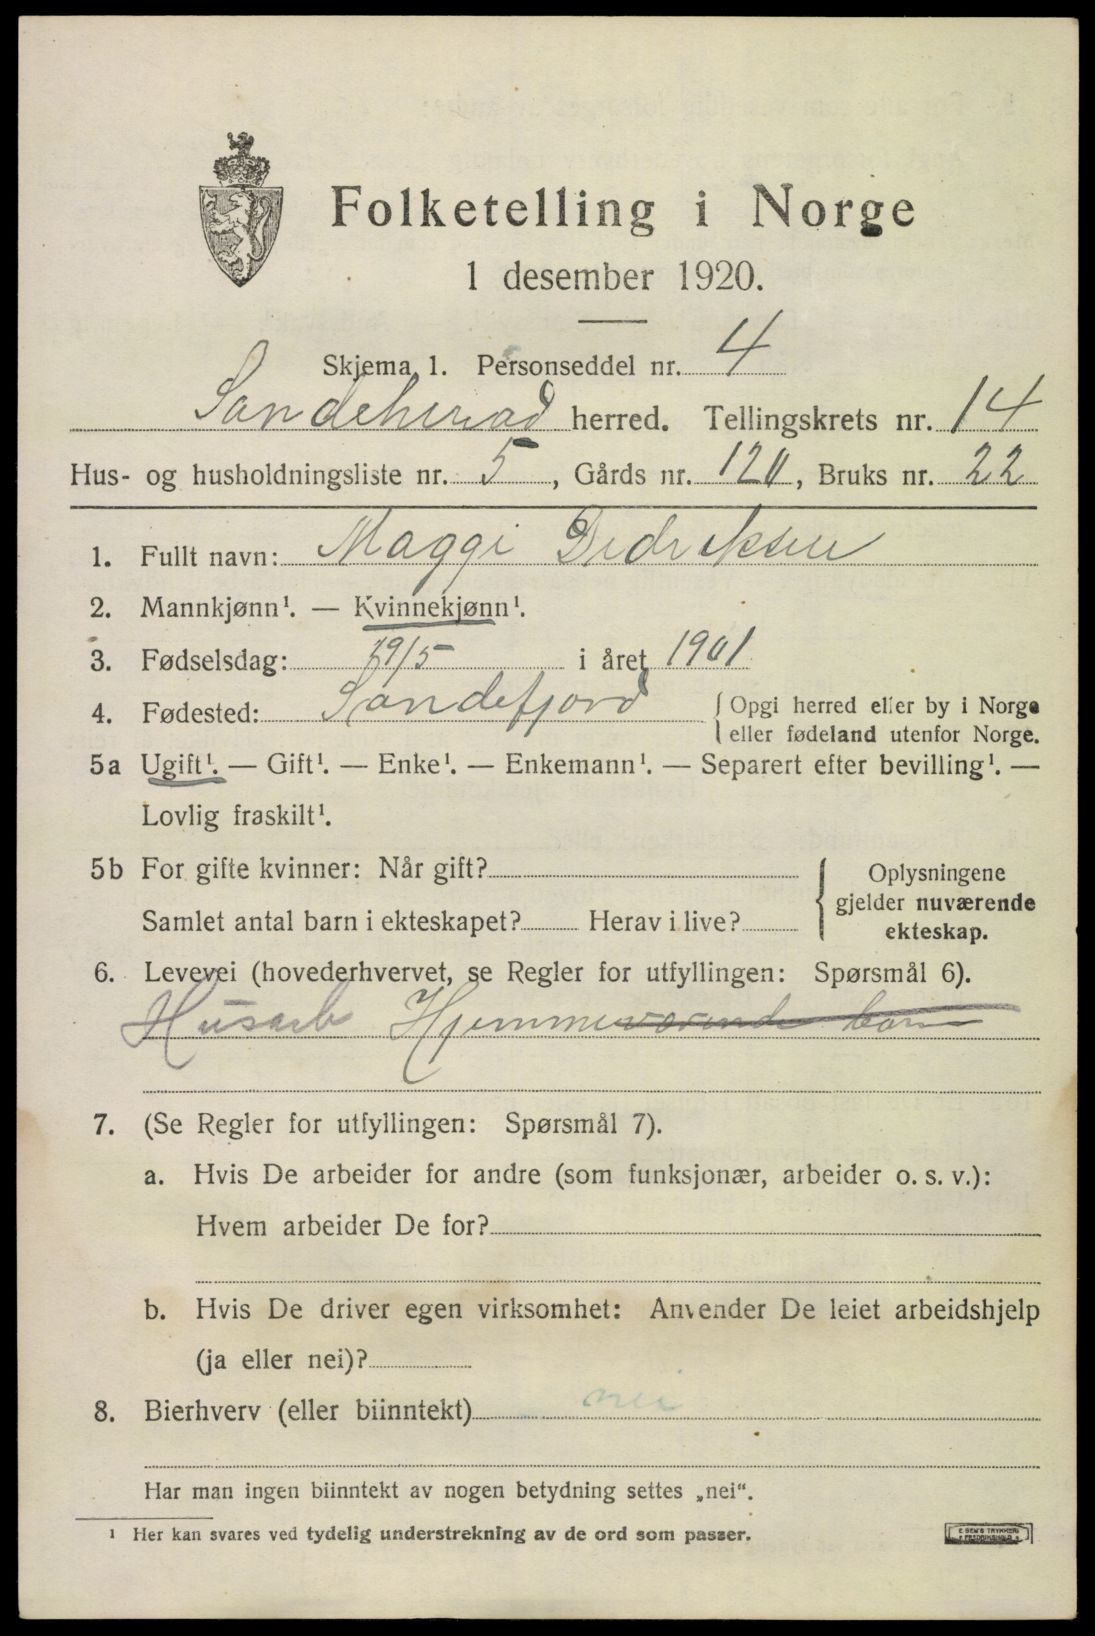 Folketelling i Norge
1 desember 1920.
Skjema 1. Personseddel nr. 4
Sandeherad herred. Tellingskrets nr. 14
Hus- og husholdningsliste nr. 5, Gårds nr. 120, Bruks nr. 22
1. Fullt navn: Maggi Didriksen
2. Mannkjønn¹. — Kvinnekjønn¹.
3. Fødselsdag: 29/5 i året 1901
4. Fødested: Sandefjord { Opgi herred eller by i Norge
eller fødeland utenfor Norge.
5a Ugift¹. — Gift¹. — Enke¹. — Enkemann¹. — Separert efter bevilling¹. —
Lovlig fraskilt¹.
5b For gifte kvinner: Når gift?
Samlet antal barn i ekteskapet? Herav i live?
{ Oplysningene
gjelder nuværende
ekteskap.
6. Levevei (hovederhvervet, se Regler for utfyllingen: Spørsmål 6).
Husarb Hjemmeværende barn
7. (Se Regler for utfyllingen: Spørsmål 7).
a. Hvis De arbeider for andre (som funksjonær, arbeider o. s. v.):
Hvem arbeider De for?
b. Hvis De driver egen virksomhet: Anvender De leiet arbeidshjelp
(ja eller nei)?
8. Bierhverv (eller biinntekt) nei
Har man ingen biinntekt av nogen betydning settes „nei“.
¹ Her kan svares ved tydelig understrekning av de ord som passer.
E. SEM'S TRYKKERI
FREDRIKSHALD